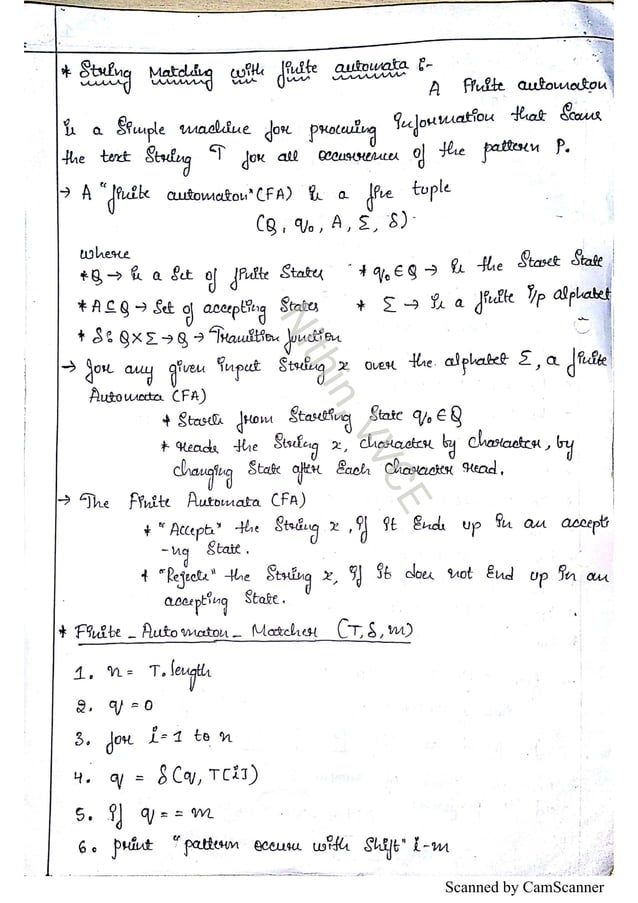 * String Matching with finite automata :-
A Finite automaton
is a Simple machine for processing Information that Scans
the text String T for all occurrences of the pattern P.
→ A "finite automaton" (FA) is a five tuple
(Q, q₀, A, Σ, δ).
where
* Q → is a Set of finite States * q₀ ∈ Q → is the Start State
* A ⊆ Q → Set of accepting States * Σ → is a finite i/p alphabet
* δ : Q × Σ → Q → Transition function
→ for any given input String x over the alphabet Σ, a finite
Automata (FA)
* Starts from Starting State q₀ ∈ Q
* Reads the String x, character by character, by
changing State after Each Character read.
→ The Finite Automata (FA)
* "Accepts" the String x, if it Ends up in an accepti
-ng State.
* "Rejects" the String x, if it does not End up in an
accepting State.
* Finite - Automaton - Matcher (T, δ, m)
1. n = T.length
2. q = 0
3. for i=1 to n
4. q = δ(q, T[i])
5. if q == m
6. print "pattern occurs with shift" i-m
Nithin, VVCE
Scanned by CamScanner